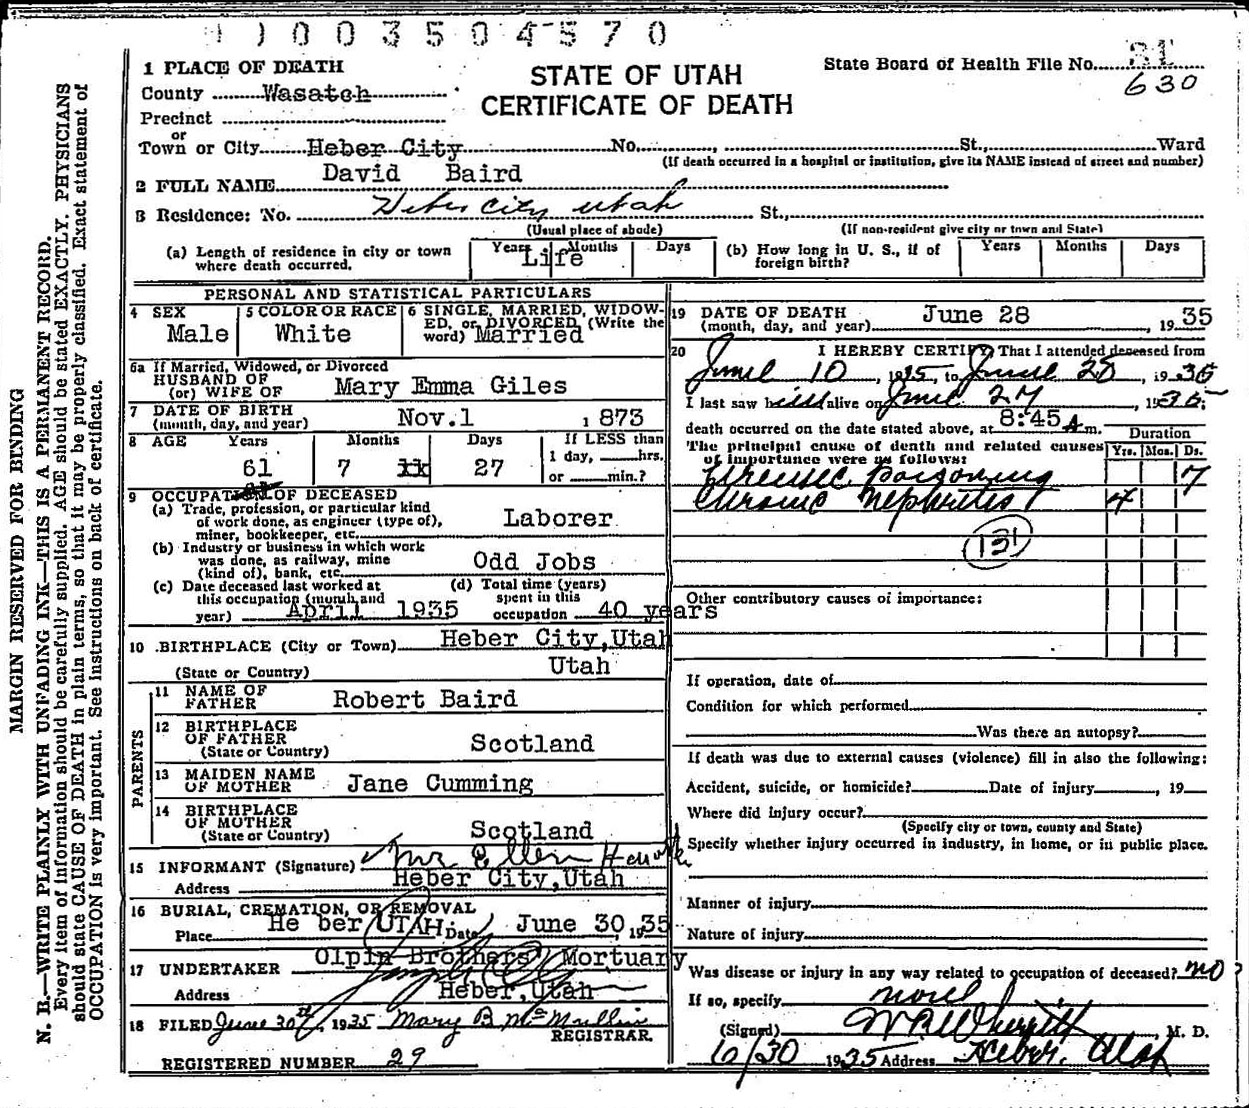 1003504570
1 PLACE OF DEATH
STATE OF UTAH
CERTIFICATE OF DEATH
State Board of Health File No. 81
630
County Wasatch
Precinct
or
Town or City Heber City No. , St., Ward
(If death occurred in a hospital or institution, give its NAME instead of street and number)
2 FULL NAME David Baird
3 Residence: No. Heber City Utah St.,
(Usual place of abode) (If non-resident give city or town and State)
(a) Length of residence in city or town where death occurred. Years Months Days Life
(b) How long in U. S., if of foreign birth? Years Months Days
PERSONAL AND STATISTICAL PARTICULARS
4 SEX Male
5 COLOR OR RACE White
6 SINGLE, MARRIED, WIDOW-
ED, or DIVORCED (Write the
word) Married
6a If Married, Widowed, or Divorced
HUSBAND OF
(or) WIFE OF Mary Emma Giles
7 DATE OF BIRTH
(month, day, and year) Nov.1 , 1873
8 AGE Years Months Days If LESS than
61 7 27 1 day, hrs.
or min.?
9 OCCUPATION OF DECEASED
(a) Trade, profession, or particular kind
of work done, as engineer (type of),
miner, bookkeeper, etc. Laborer
(b) Industry or business in which work
was done, as railway, mine
(kind of), bank, etc. Odd Jobs
(c) Date deceased last worked at
this occupation (month and
year) April 1935
(d) Total time (years)
spent in this
occupation 40 years
10 BIRTHPLACE (City or Town) Heber City,Utah
(State or Country) Utah
PARENTS
11 NAME OF
FATHER Robert Baird
12 BIRTHPLACE
OF FATHER
(State or Country) Scotland
13 MAIDEN NAME
OF MOTHER Jane Cumming
14 BIRTHPLACE
OF MOTHER
(State or Country) Scotland
15 INFORMANT (Signature) Mrs Ellen
Address Heber City,Utah
16 BURIAL, CREMATION, OR REMOVAL
Place Heber UTAH Date June 30, 1935
17 UNDERTAKER Olpin Brothers Mortuary
Address Heber,Utah
18 FILED June 30th, 1935 Mary B McMullin
REGISTRAR.
REGISTERED NUMBER 29
19 DATE OF DEATH
(month, day, and year) June 28 , 1935
20 I HEREBY CERTIFY, That I attended deceased from
June 10, 1935, to June 28, 1935
I last saw him alive on June 27, 1935;
death occurred on the date stated above, at 8:45 A m.
The principal cause of death and related causes
of importance were as follows:
Duration
Yrs. Mos. Ds.
Uremic Poisoning 7
Chronic Nephritis 4
131
Other contributory causes of importance:
If operation, date of
Condition for which performed
Was there an autopsy?
If death was due to external causes (violence) fill in also the following:
Accident, suicide, or homicide? Date of injury , 19
Where did injury occur?
(Specify city or town, county and State)
Specify whether injury occurred in industry, in home, or in public place.
Manner of injury
Nature of injury
Was disease or injury in any way related to occupation of deceased? no
If so, specify none
(Signed) , M. D.
6/30 1935 Address Heber, Utah
MARGIN RESERVED FOR BINDING
N. B.—WRITE PLAINLY WITH UNFADING INK—THIS IS A PERMANENT RECORD.
Every item of information should be carefully supplied. AGE should be stated EXACTLY. PHYSICIANS
should state CAUSE OF DEATH in plain terms, so that it may be properly classified. Exact statement of
OCCUPATION is very important. See instructions on back of certificate.